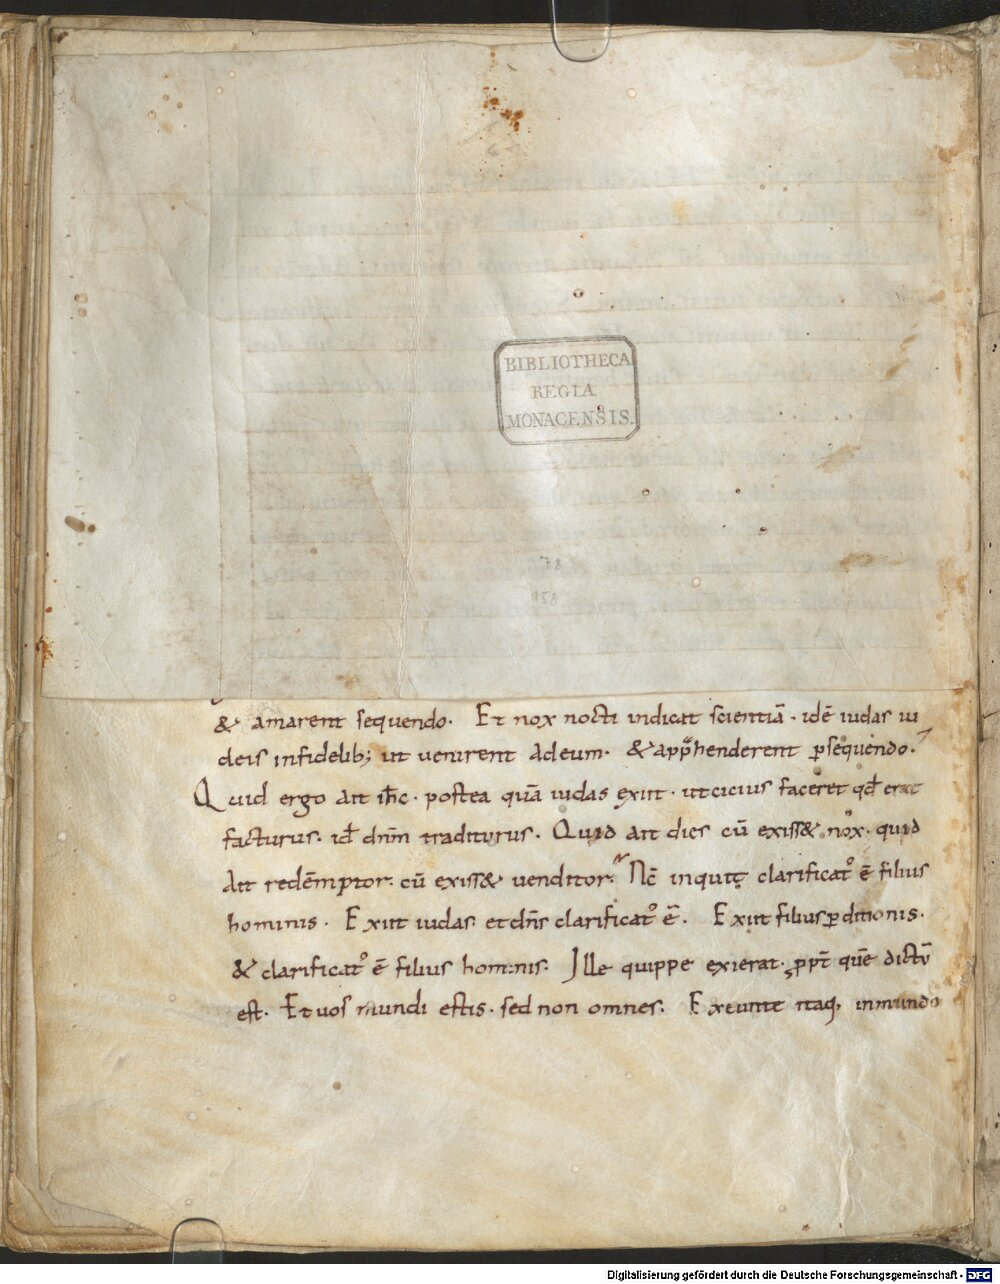 BIBLIOTHECA
REGIA
MONACENSIS.
& amarent sequendo. Et nox nocti indicat scientiā. idē iudas iu
deis infidelib; ut venirent adeum. & app̄henderent p̱sequendo.
Quid ergo ait ihc̄. postea quā iudas exiit. ut cicius faceret qd̄ erat
facturus. id̄ dnm̄ traditurus. Quid ait dies cū exiss& nox. quid
ait redēmptor. cū exiss& venditor. Nc̄ inquit clarificat᷒ ē filius
hominis. Exiit iudas. et dn̄s clarificat᷒ ē. Exiit filius p̱ditionis.
& clarificat᷒ ē filius hominis. Ille quippe exierat. ꝓpt̄ quē dictū
est. Et vos mundi estis. sed non omnes. Exeunte itaq, inmundo
Digitalisierung gefördert durch die Deutsche Forschungsgemeinschaft - DFG